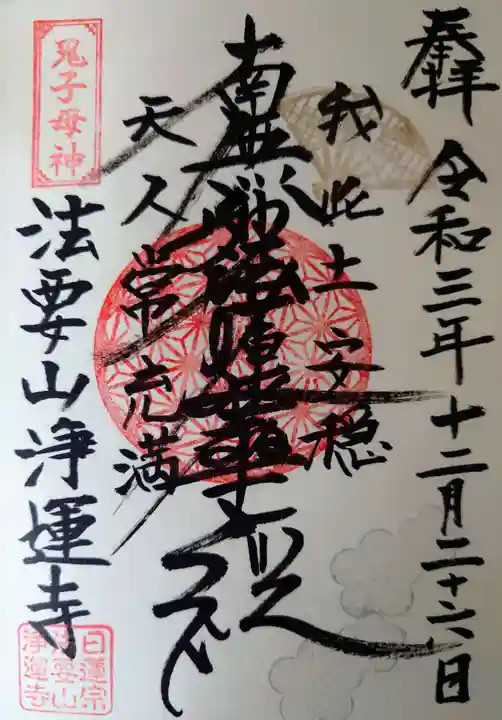 奉拝 令和三年十二月二十六日
我此土安穏
南無妙法蓮華経
天人常充満
鬼子母神
法要山浄運寺
日蓮宗
法要山
浄運寺